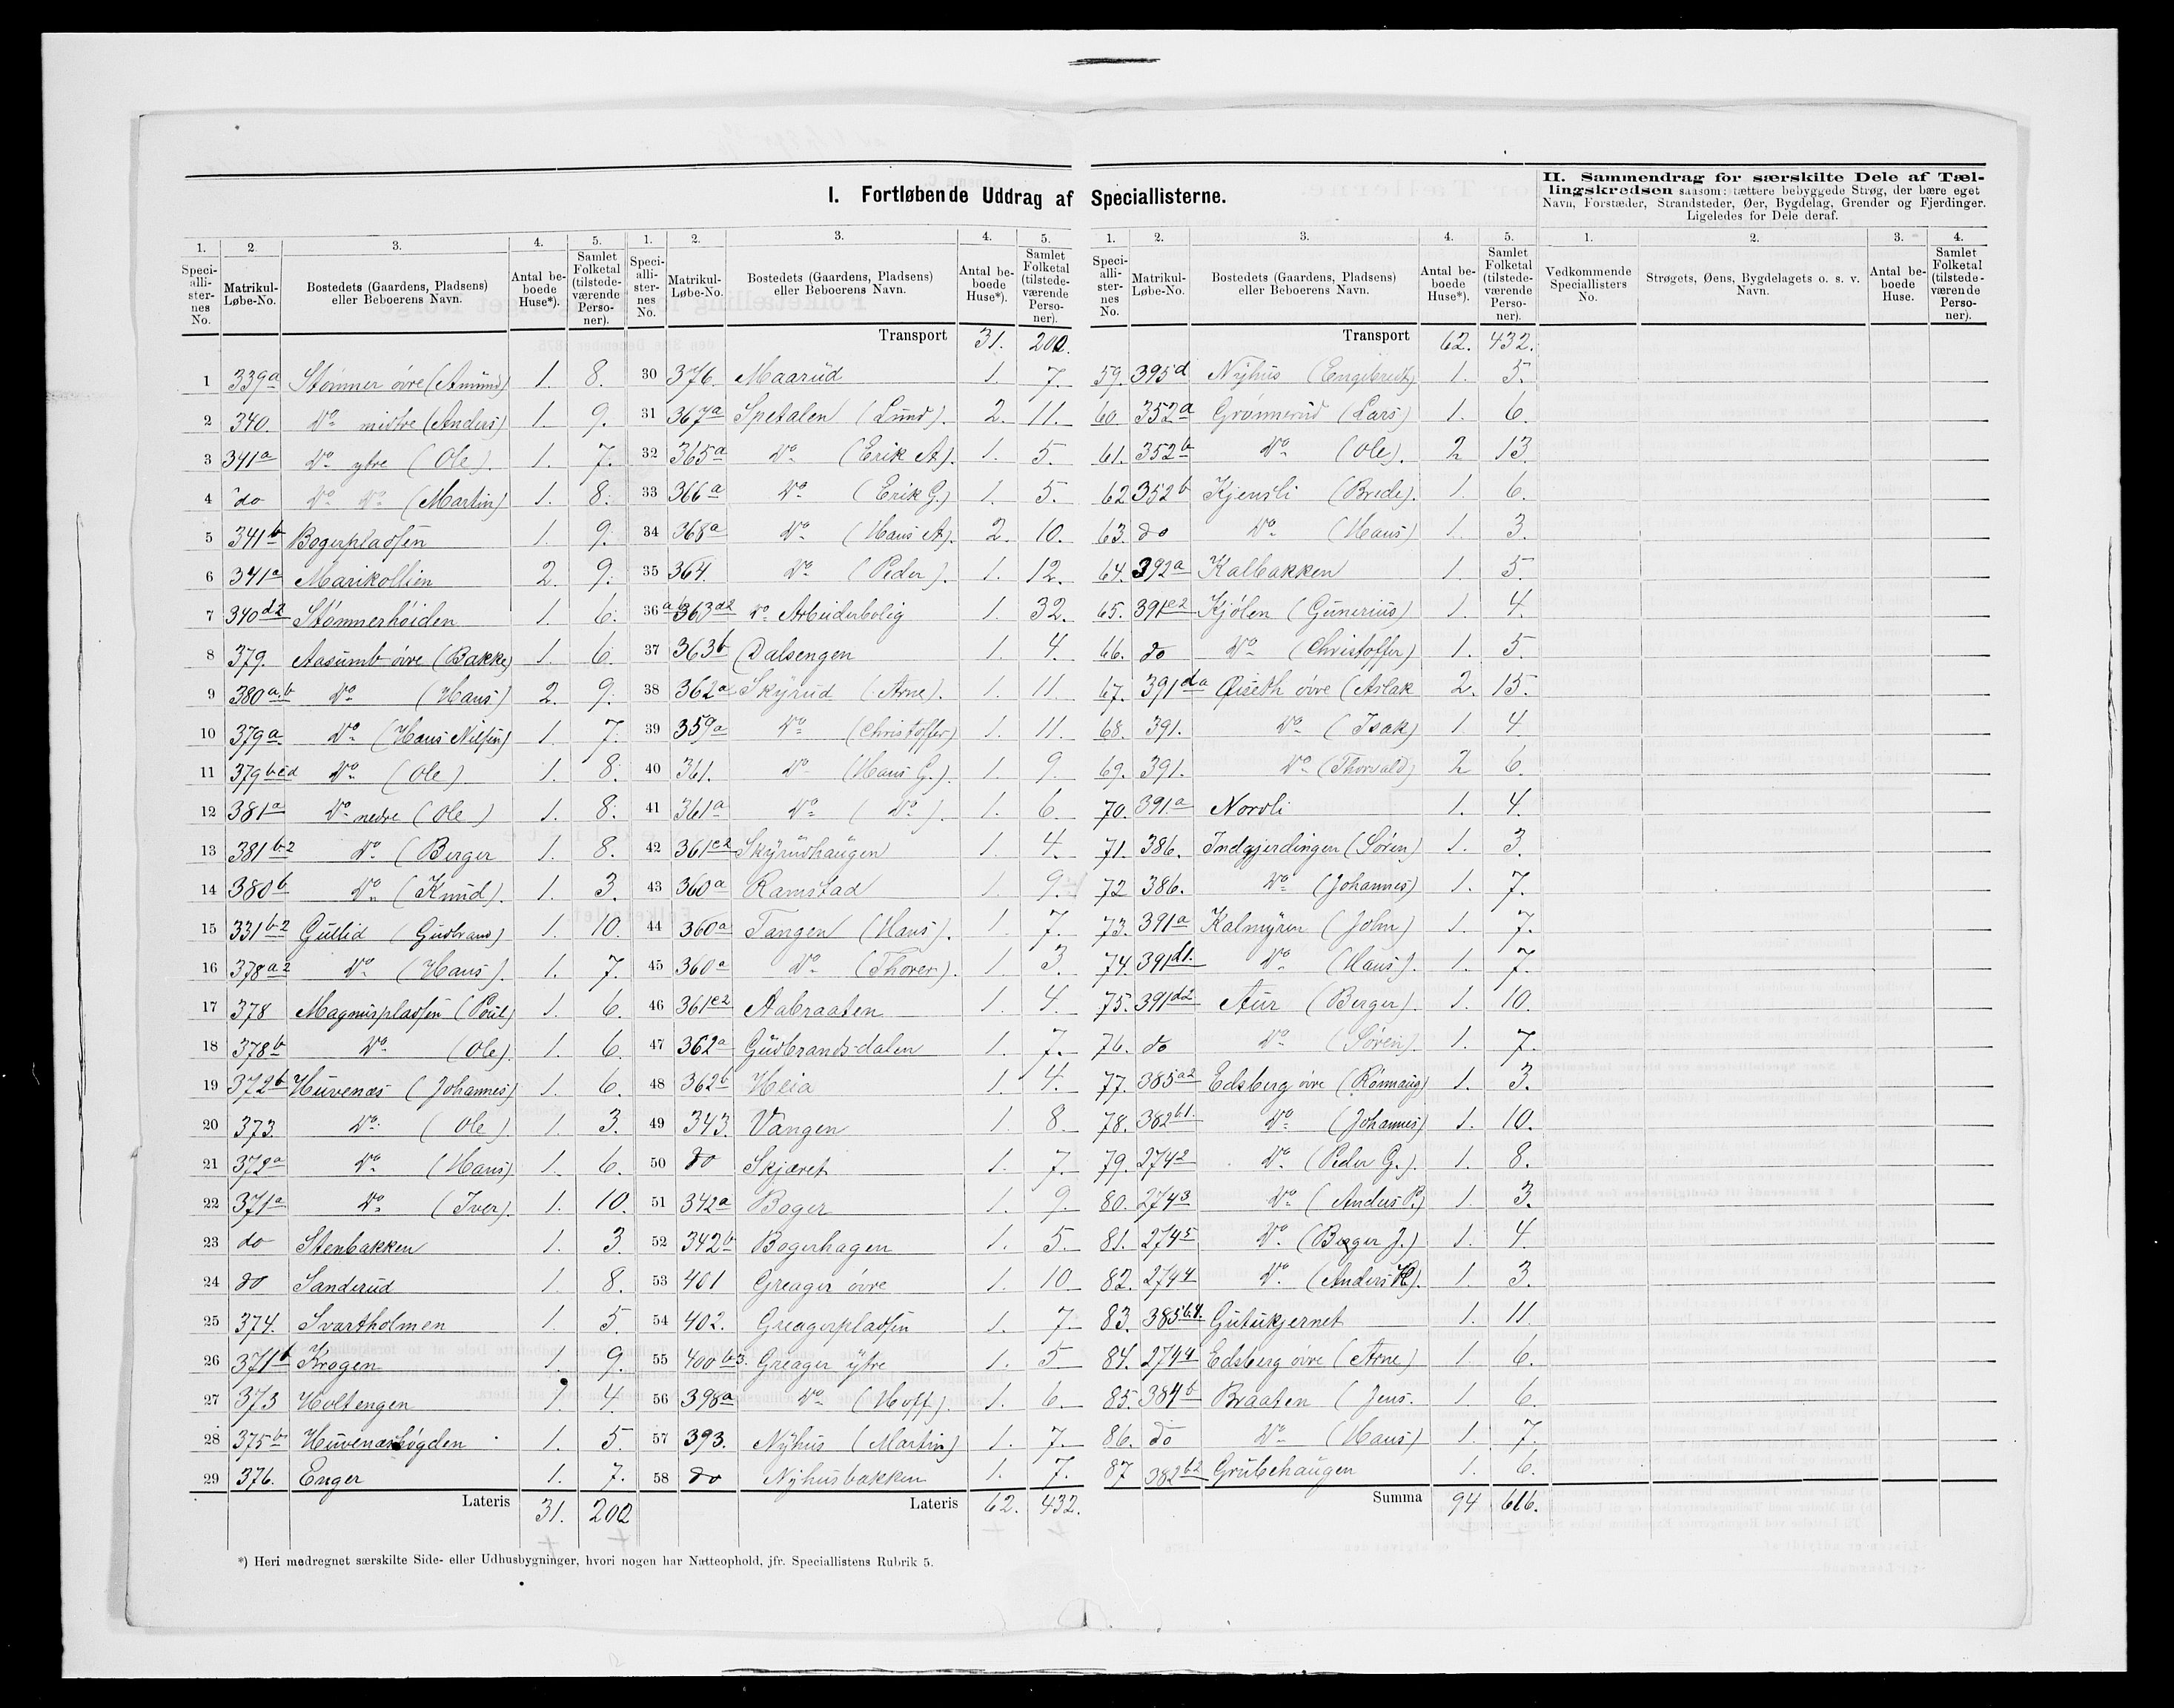 I. Fortløbende Uddrag af Speciallisterne.
1. Speciallisternes No. | 2. Matrikul-Løbe-No. | 3. Bostedets (Gaardens, Pladsens) eller Beboerens Navn. | 4. Antal beboede Huse*). | 5. Samlet Folketal (tilstedeværende Personer).
1 339a Stømner øvre (Amund) 1. 8.
2 340. Do midtre (Anders) 1. 9.
3 341a Do ytre (Ole). 1. 7.
4 do Do Do (Martin) 1. 8.
5 341b Bogerpladsen 1. 9.
6 341a Marikollien 2. 9.
7 340d2 Stømnerhøiden 1. 6.
8 379. Aasumb øvre (Bakke) 1. 6.
9 380a.b Do (Hans) 2. 9.
10 379a. Do (Hans Nilsen) 1. 7.
11 379bcd Do (Ole) 1. 8.
12 381a Do nedre (Ole) 1. 8.
13 381b2 Do (Berger 1. 8.
14 380b Do (Knud). 1. 3.
15 331b2 Gullid (Gudbrand) 1. 10.
16 378a2 Do (Hans). 1. 7.
17 378 Magnuspladsen (Poul) 1. 6.
18 378b Do (Ole). 1. 6.
19 372b Huvenæs (Johannes) 1. 6.
20 373. Do (Ole). 1. 3.
21 372a Do (Hans) 1. 6.
22 371a Do (Iver). 1. 10.
23 do Stenbakken 1. 3.
24 do Sanderud 1. 8.
25 374. Svartholmen 1. 5.
26 371b Krogen 1. 9.
27 373 Holtengen 1. 4.
28 375b Huvenæshøgden 1. 5.
29 376. Enger 1. 7.
Lateris 31. 200
1. Speciallisternes No. | 2. Matrikul-Løbe-No. | 3. Bostedets (Gaardens, Pladsens) eller Beboerens Navn. | 4. Antal beboede Huse*). | 5. Samlet Folketal (tilstedeværende Personer).
Transport 31. 200.
30 376. Maarud 1. 7.
31 367a Spetalen (Lund). 2. 11.
32 365a Do (Erik A). 1. 5.
33 366a Do (Erik G.) 1. 5.
34 368a Do (Hans A). 2. 10.
35 364. Do (Peder). 1. 12.
36ab 363d2 Do Arbeiderbolig 1. 32.
37 363b Dalsengen 1. 4.
38 362a Skyrud (Arne). 1. 11.
39 359a Do (Christoffer) 1. 11.
40 361. Do (Hans G.). 1. 9.
41 361a Do (Do). 1. 6.
42 361c2 Skyrudhaugen 1. 4.
43 360a Ramstad 1. 9.
44 360a Tangen (Hans). 1. 7.
45 360a Do (Thorer). 1. 3.
46 361c2 Aabraaten 1. 4.
47 362a Gudbrandsdalen 1. 7.
48 362b Heia 1. 4.
49 343. Vangen 1. 8.
50 do Skjæret 1. 7.
51 342a Boger 1. 9.
52 342b Bogerhagen 1. 5.
53 401 Greager øvre 1. 10
54 402. Greagerpladsen 1. 7
55 400b3. Greager ytre 1. 5
56 398a Do (Hoff). 1. 6.
57 393. Nyhus (Martin) 1. 7.
58 do Nyhusbakken 1. 7.
Lateris 62. 432.
*) Heri medregnet særskilte Side- eller Udhusbygninger, hvori nogen har Natteophold, jfr. Speciallistens Rubrik 5.
1. Speciallisternes No. | 2. Matrikul-Løbe-No. | 3. Bostedets (Gaardens, Pladsens) eller Beboerens Navn. | 4. Antal beboede Huse*). | 5. Samlet Folketal (tilstedeværende Personer).
Transport 62. 432.
59. 395d Nyhus (Engebredt) 1. 5.
60. 352a Grønnerud (Lars) 1. 6.
61. 352b Do (Ole). 2 13.
62 352b Kjensli (Brede). 1. 6.
63. do Do (Hans) 1. 3.
64. 392a Kalbakken 1. 5.
65. 391c2 Kjølen (Gunerius) 1. 4.
66. do Do (Christoffer) 1. 5.
67. 391da Øiseth øvre (Aslak 2. 15.
68. 391. Do (Isak) 1. 4.
69. 391. Do (Thorvald) 2 6.
70. 391a Nordli 1. 4.
71. 386. Indgjerdingen (Søren) 1. 3.
72 386. Do (Johannes) 1. 7.
73. 391a Kalmyren (John) 1. 7.
74. 391d1. Do (Hans). 1. 7.
75. 391d2 Aur (Berger). 1. 10.
76. do Do (Søren). 1. 7.
77. 385a2 Edsberg øvre (Rønnaug) 1. 3.
78. 382b1. Do (Johannes) 1. 10.
79. 2742 Do (Peder G.). 1. 8.
80. 2743 Do (Anders P.) 1. 3.
81. 2745 Do (Berger J.) 1. 4.
82. 2744 Do (Anders H). 1. 3.
83. 385b4. Gutukjernet 1. 11.
84. 2744 Edsberg øvre (Arne) 1. 6.
85. 384b Braaten (Jens. 1. 6.
86. do Do (Hans) 1. 7.
87 382b2 Grubehaugen 1. 6.
Summa 94 616.
II. Sammendrag for særskilte Dele af Tællingskredsen saasom: tættere bebyggede Strøg, der bære eget Navn, Forstæder, Strandsteder, Øer, Bygdelag, Grender og Fjerdinger. Ligeledes for Dele deraf.
1. Vedkommende Speciallisters No. | 2. Strøgets, Øens, Bygdelagets o. s. v. Navn. | 3. Antal beboede Huse. | 4. Samlet Folketal (tilstedeværende Personer).